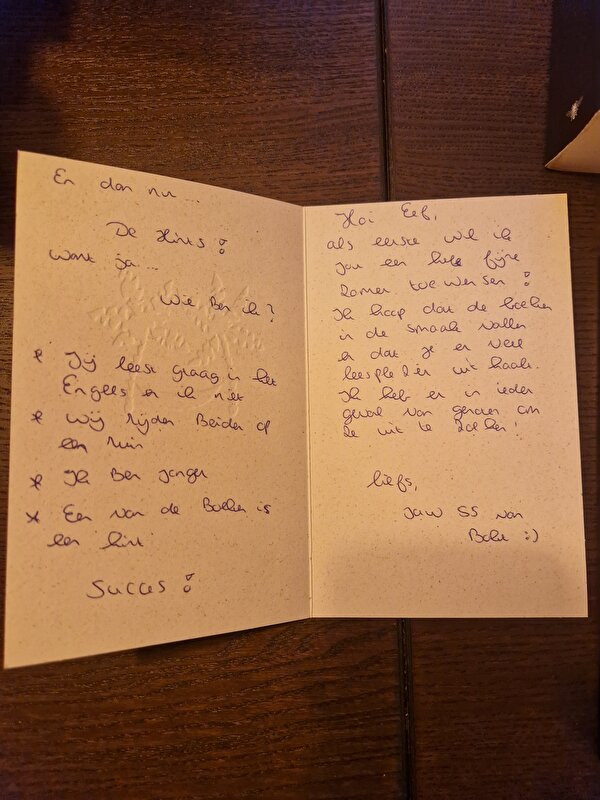 En dan nu...
De Hints!
Want ja...
Wie Ben ik?
* Jij leest graag in het
Engels en ik niet
* Wij rijden Beiden op
een ruin
* Ik Ben jonger
* Een van de Boeken is
een hint
Succes!
Hoi Eef,
als eerste wil ik
jou een hele fijne
Zomer toe wensen!
Ik hoop dat de boeken
in de smaak vallen
en dat je er veel
leesplezier uit haalt.
Ik heb er in ieder
geval van genoten om
ze uit te zoeken!
liefs,
Jouw SS van
Bol :)